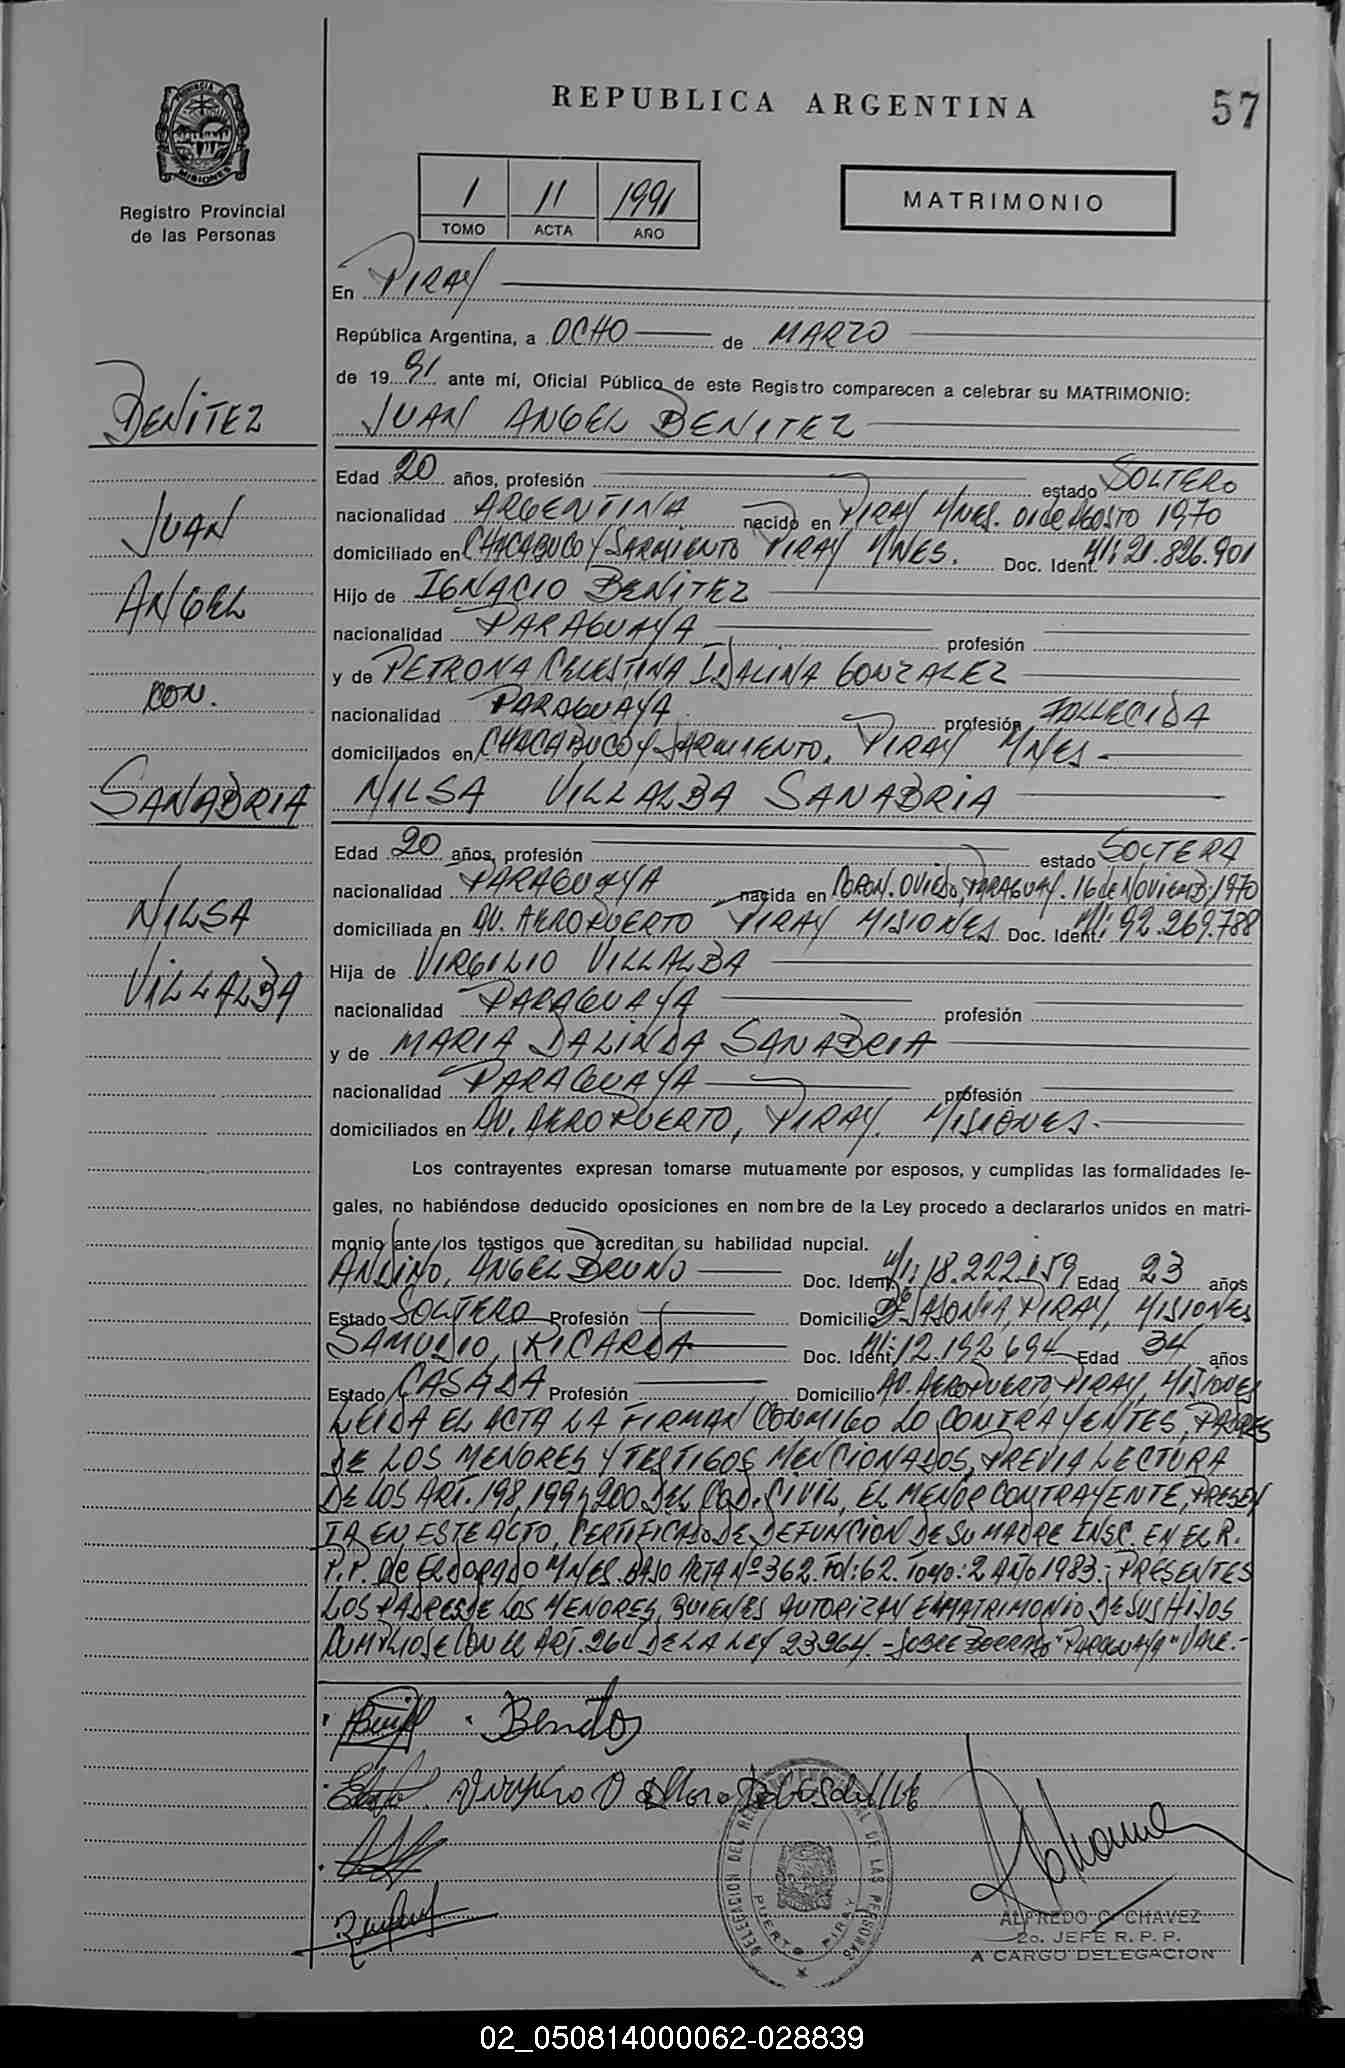 REPUBLICA ARGENTINA
57
PROVINCIA DE
MISIONES
Registro Provincial
de las Personas
1 11 1991
TOMO ACTA AÑO
MATRIMONIO
En PIRAY
República Argentina, a OCHO de MARZO
de 19 91 ante mí, Oficial Público de este Registro comparecen a celebrar su MATRIMONIO:
BENITEZ
JUAN ANGEL BENITEZ
Edad 20 años, profesión estado SOLTERO
JUAN
nacionalidad ARGENTINA nacido en PIRAY MNES. 01 de AGOSTO 1970
domiciliado en CHACABUCO Y SARMIENTO PIRAY MNES. Doc. Ident. MI: 21.826.901
ANGEL
Hijo de IGNACIO BENITEZ
nacionalidad PARAGUAYA profesión
y de PETRONA CELESTINA IDALINA GONZALEZ
CON.
nacionalidad PARAGUAYA profesión FALLECIDA
domiciliados en CHACABUCO Y SARMIENTO, PIRAY MNES-
SANABRIA
NILSA VILLALBA SANABRIA
Edad 20 años, profesión estado SOLTERA
nacionalidad PARAGUAYA nacida en CORON. OVIEDO, PARAGUAY. 16 de NOVIEMB. 1970
NILSA
domiciliada en AV. AEROPUERTO PIRAY MISIONES Doc. Ident. MI: 92.269.788
Hija de VIRGILIO VILLALBA
VILLALBA
nacionalidad PARAGUAYA profesión
y de MARIA DALINDA SANABRIA
nacionalidad PARAGUAYA profesión
domiciliados en AV. AEROPUERTO, PIRAY. MISIONES.-
Los contrayentes expresan tomarse mutuamente por esposos, y cumplidas las formalidades le-
gales, no habiéndose deducido oposiciones en nombre de la Ley procedo a declararlos unidos en matri-
monio ante los testigos que acreditan su habilidad nupcial.
ANDINO, ANGEL BRUNO Doc. Ident. MI: 18.222.159 Edad 23 años
Estado SOLTERO Profesión Domicilio SASONIA, PIRAY, MISIONES
SAMUDIO, RICARDA Doc. Ident. MI: 12.192.694 Edad 34 años
Estado CASADA Profesión Domicilio AV. AEROPUERTO, PIRAY, MISIONES
LEIDA EL ACTA LA FIRMAN CONMIGO LO CONTRAYENTES, PADRES
DE LOS MENORES Y TESTIGOS MENCIONADOS, PREVIA LECTURA
DE LOS ART. 198, 199 y 200 DEL COD. CIVIL, EL MENOR CONTRAYENTE, PRESEN
TA EN ESTE ACTO, CERTIFICADO DE DEFUNCION DE SU MADRE INSC. EN EL R.
P.P. DE ELDORADO MNES. BAJO ACTA Nº 362. Fol: 62. Tomo: 2 AÑO 1983.; PRESENTES
LOS PADRES DE LOS MENORES, QUIENES AUTORIZAN EL MATRIMONIO DE SUS HIJOS
CUMPLIOSE CON EL ART. 26 DE LA LEY 23264.- SOBRE BORRADO "PARAGUAYA" VALE.-
DELEGACION DEL REGISTRO PROVINCIAL DE LAS PERSONAS
PUERTO PIRAY
ALFREDO C. CHAVEZ
2o. JEFE R. P. P.
A CARGO DELEGACION
02_050814000062-028839